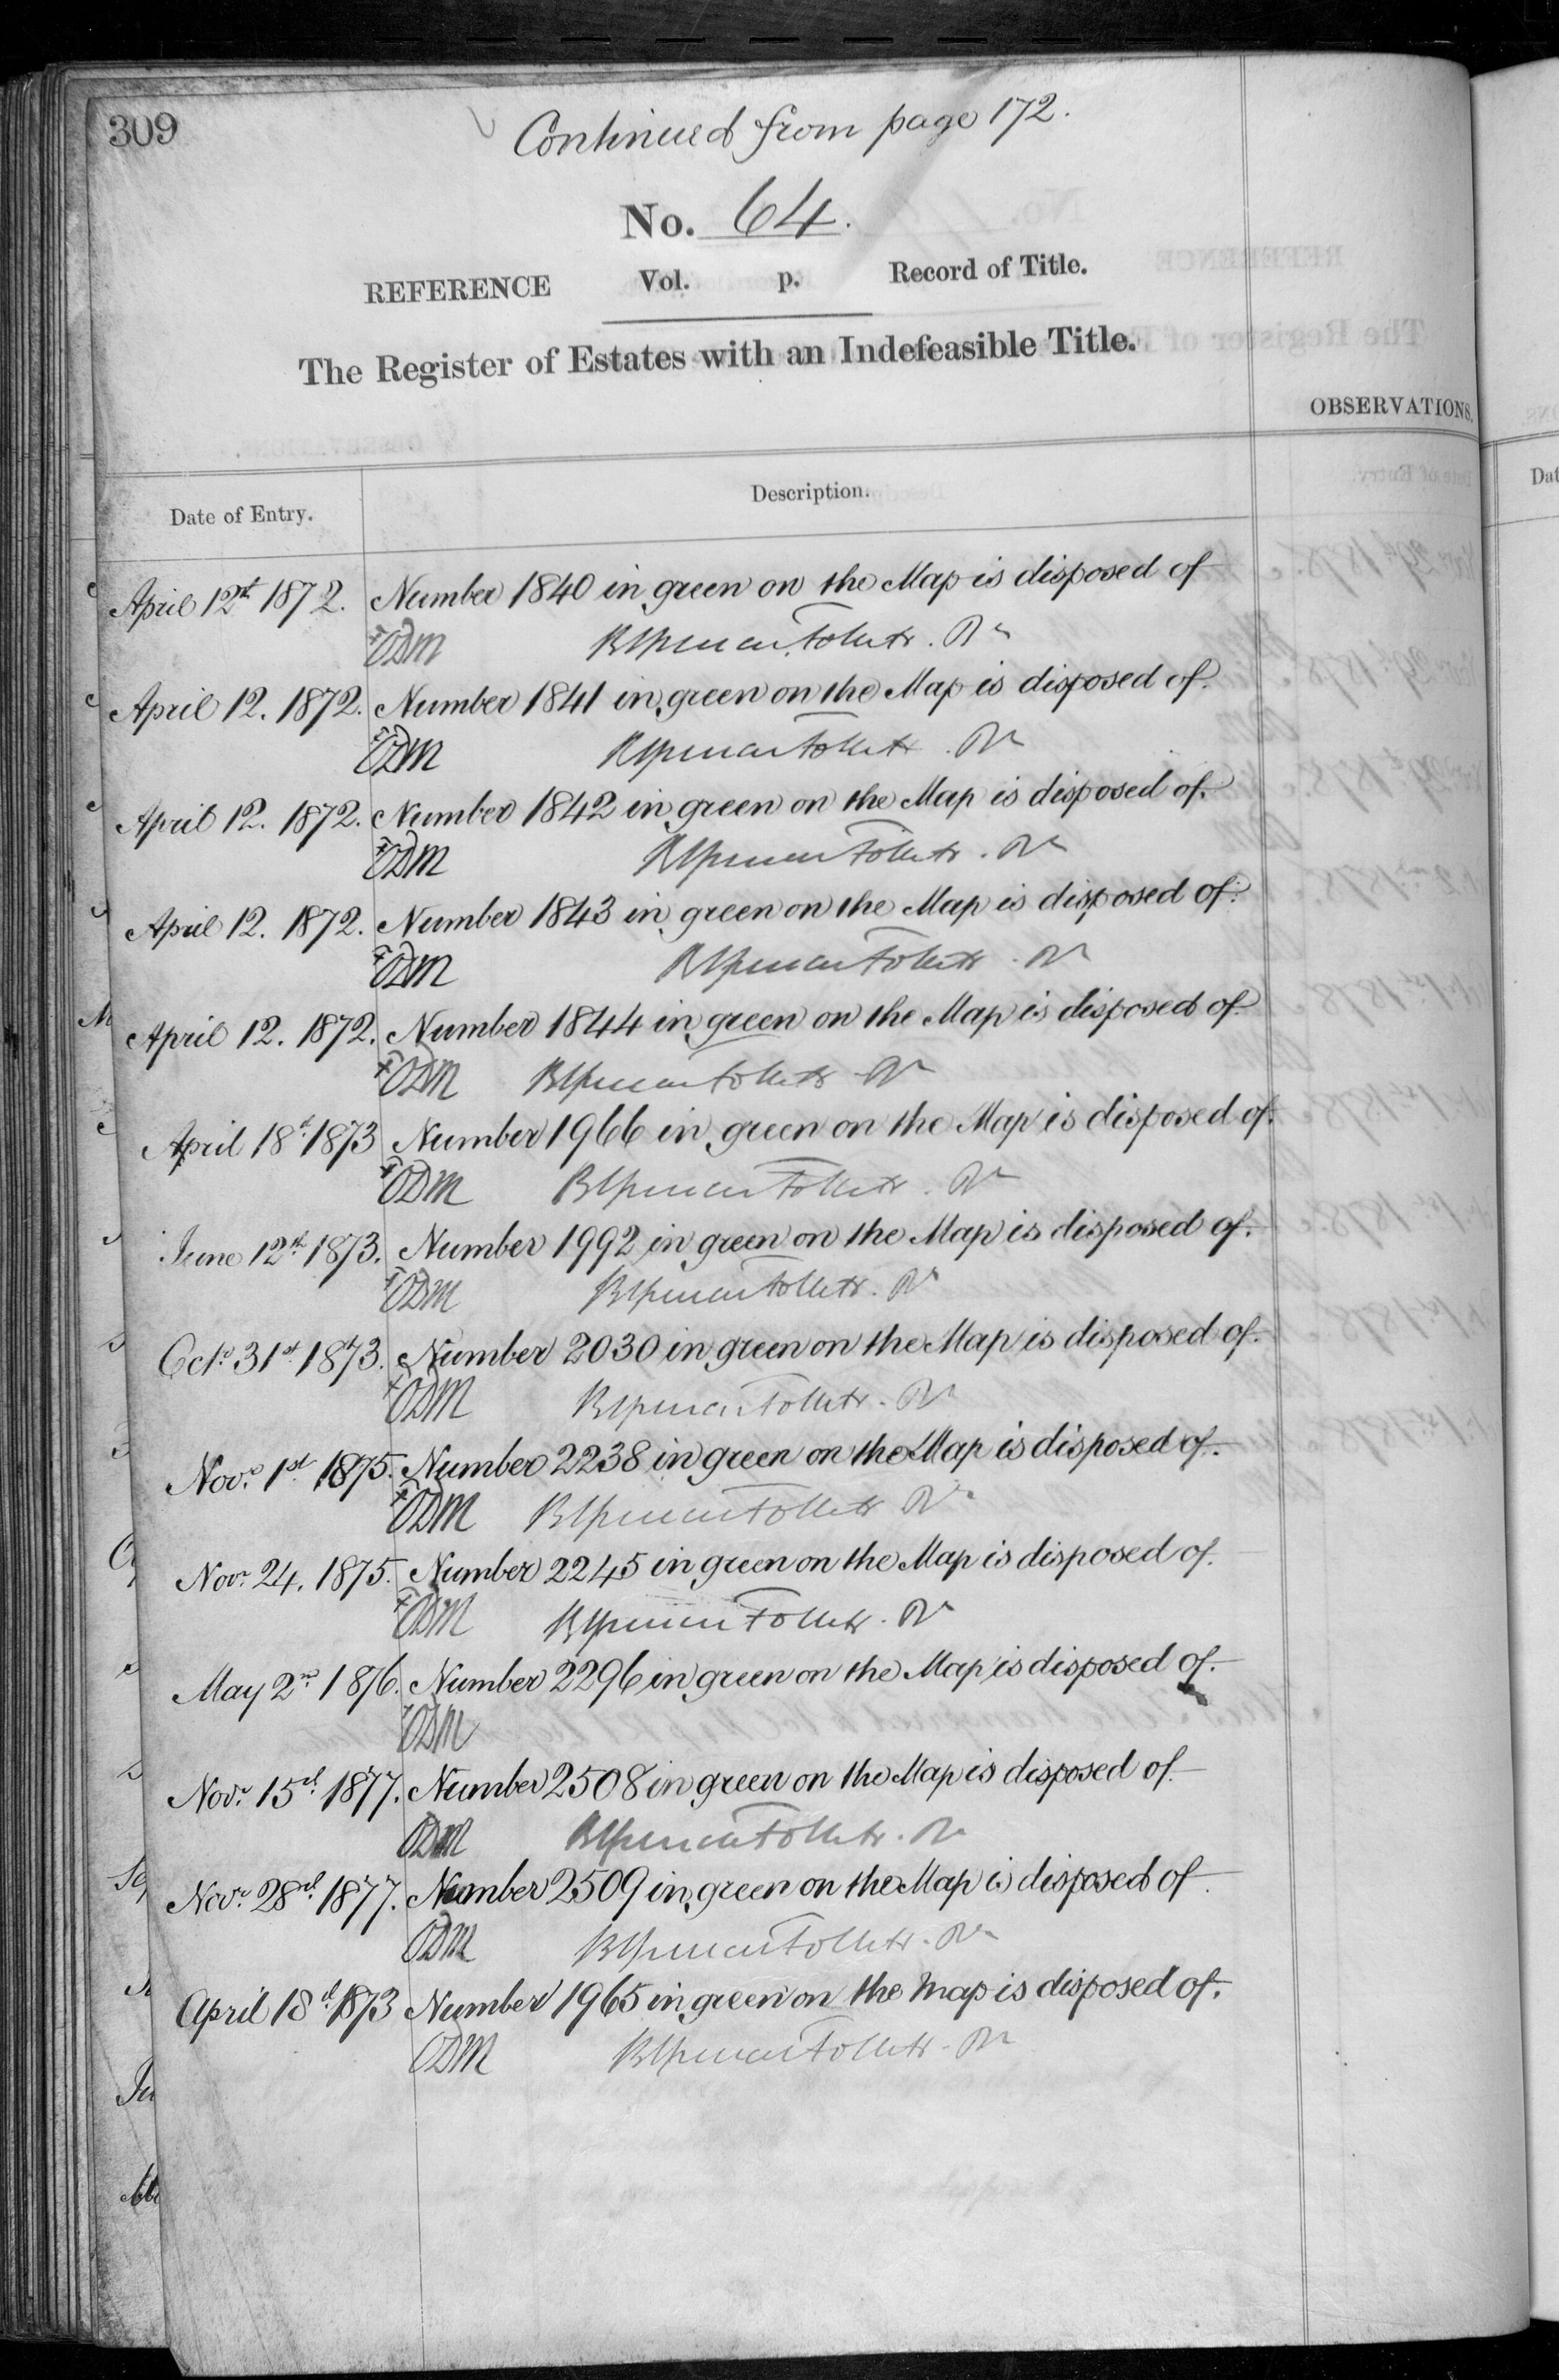 309
Continued from page 172.
No. 64.
REFERENCE Vol. p. Record of Title.
The Register of Estates with an Indefeasible Title.
OBSERVATIONS.
Date of Entry. Description.
April 12th 1872. Number 1840 in green on the Map is disposed of
ODM
April 12. 1872. Number 1841 in green on the Map is disposed of.
ODM
April 12. 1872. Number 1842 in green on the Map is disposed of.
ODM
April 12. 1872. Number 1843 in green on the Map is disposed of.
ODM
April 12. 1872. Number 1844 in green on the Map is disposed of
ODM
April 18th 1873 Number 1966 in green on the Map is disposed of.
ODM
June 12th 1873. Number 1992 in green on the Map is disposed of.
ODM
Octr 31st 1873. Number 2030 in green on the Map is disposed of.
ODM
Novr 1st 1875. Number 2238 in green on the Map is disposed of.
ODM
Novr 24. 1875. Number 2245 in green on the Map is disposed of.
ODM
May 2nd 1876. Number 2296 in green on the Map is disposed of.
ODM
Novr 15th 1877. Number 2508 in green on the Map is disposed of.
ODM
Novr 28th 1877. Number 2509 in green on the Map is disposed of.
ODM
April 18th 1873 Number 1965 in green on the Map is disposed of.
ODM